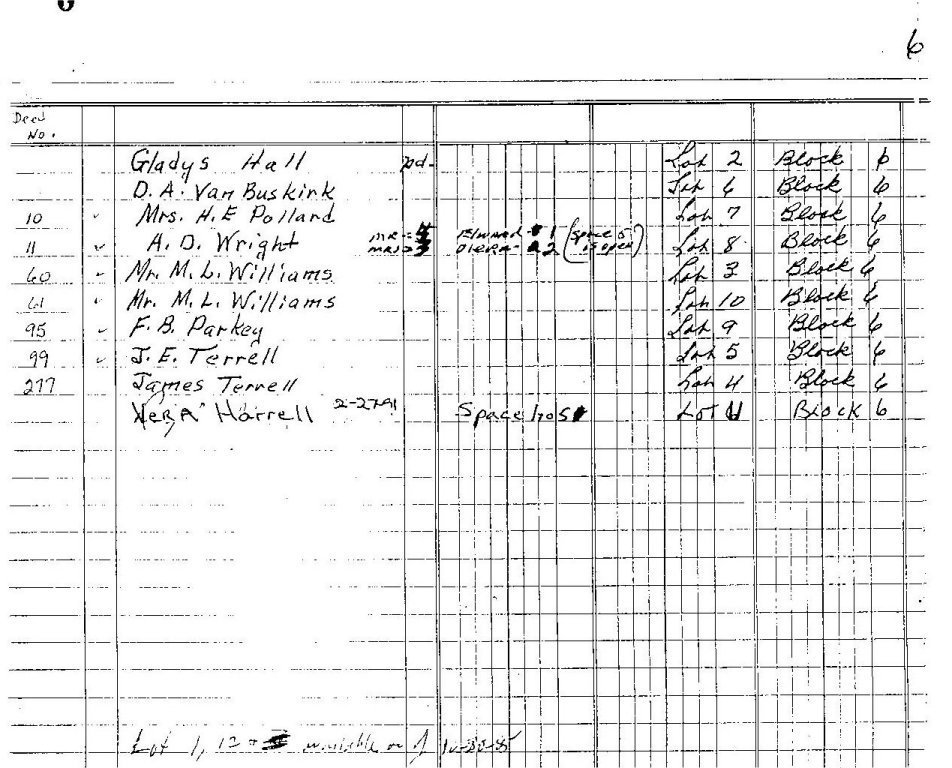 6
Deed No.
Gladys Hall pd. Lot 2 Block 6
D. A. Van Buskirk Lot 6 Block 6
10 ✓ Mrs. H. E Pollard Lot 7 Block 6
11 ✓ A. D. Wright MR-4 MRS-3 1 2 (Space 5 is open) Lot 8 Block 6
60 ✓ Mr. M. L. Williams Lot 3 Block 6
61 ✓ Mr. M. L. Williams Lot 10 Block 6
95 ✓ F. B. Parkey Lot 9 Block 6
99 ✓ J. E. Terrell Lot 5 Block 6
277 James Terrell Lot 4 Block 6
Vera Harrell 2-27-91 Space Lot 11 Block 6
Lot 1, 12 available